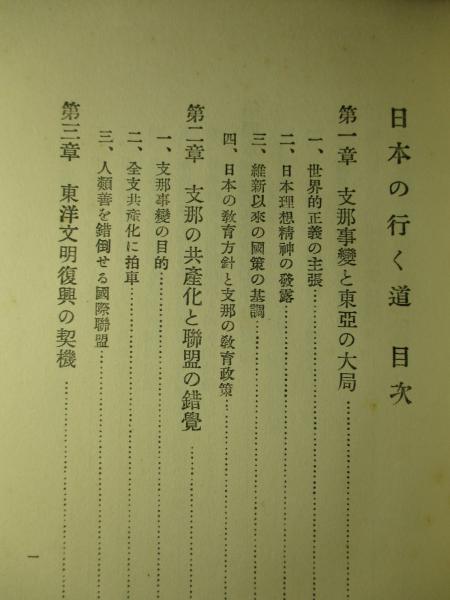 日本の行く道 目次
第一章 支那事變と東亞の大局
一、世界的正義の主張
二、日本理想精神の發露
三、維新以來の國策の基調
四、日本の敎育方針と支那の敎育政策
第二章 支那の共產化と聯盟の錯覺
一、支那事變の目的
二、全支共產化に拍車
三、人類善を錯倒せる國際聯盟
第三章 東洋文明復興の契機
一